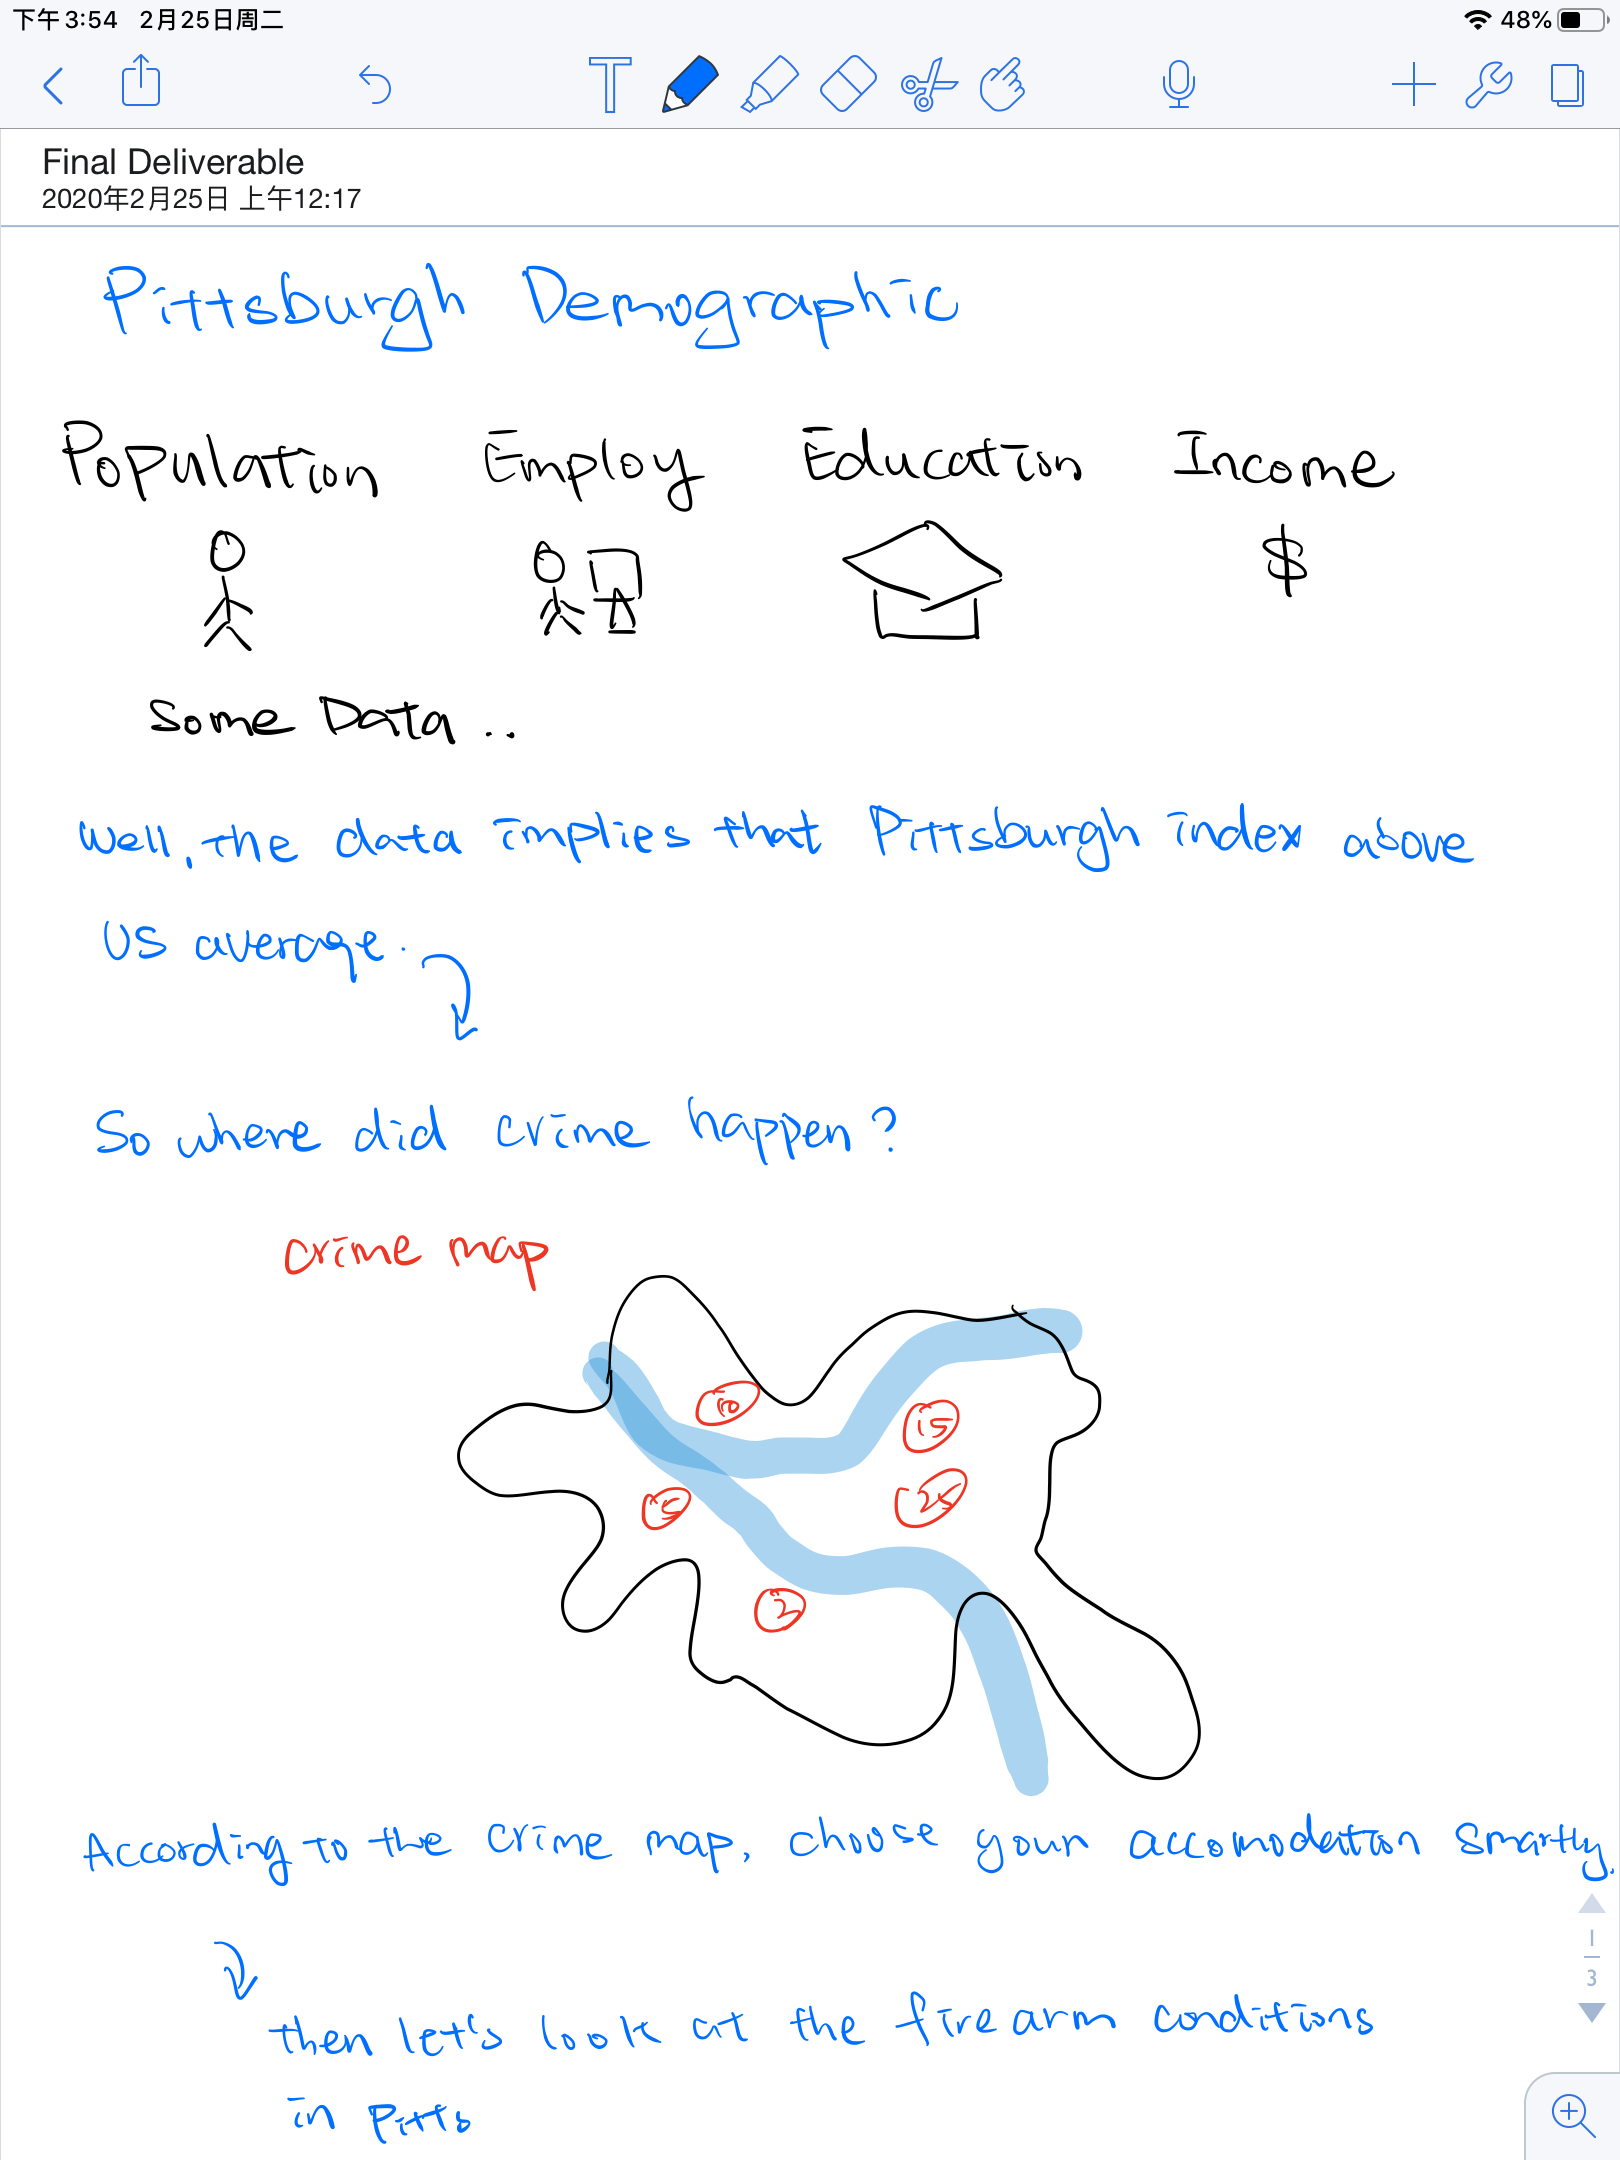 下午3:54 2月25日周二 48%
T
Final Deliverable
2020年2月25日 上午12:17
Pittsburgh Demographic
Population Employ Education Income
$
Some Data ..
Well, the data implies that Pittsburgh index above
US average.
So where did crime happen?
crime map
10
15
25
5
2
According to the crime map, choose your accomodation smartly.
1
3
then let's look at the firearm conditions
in Pitts